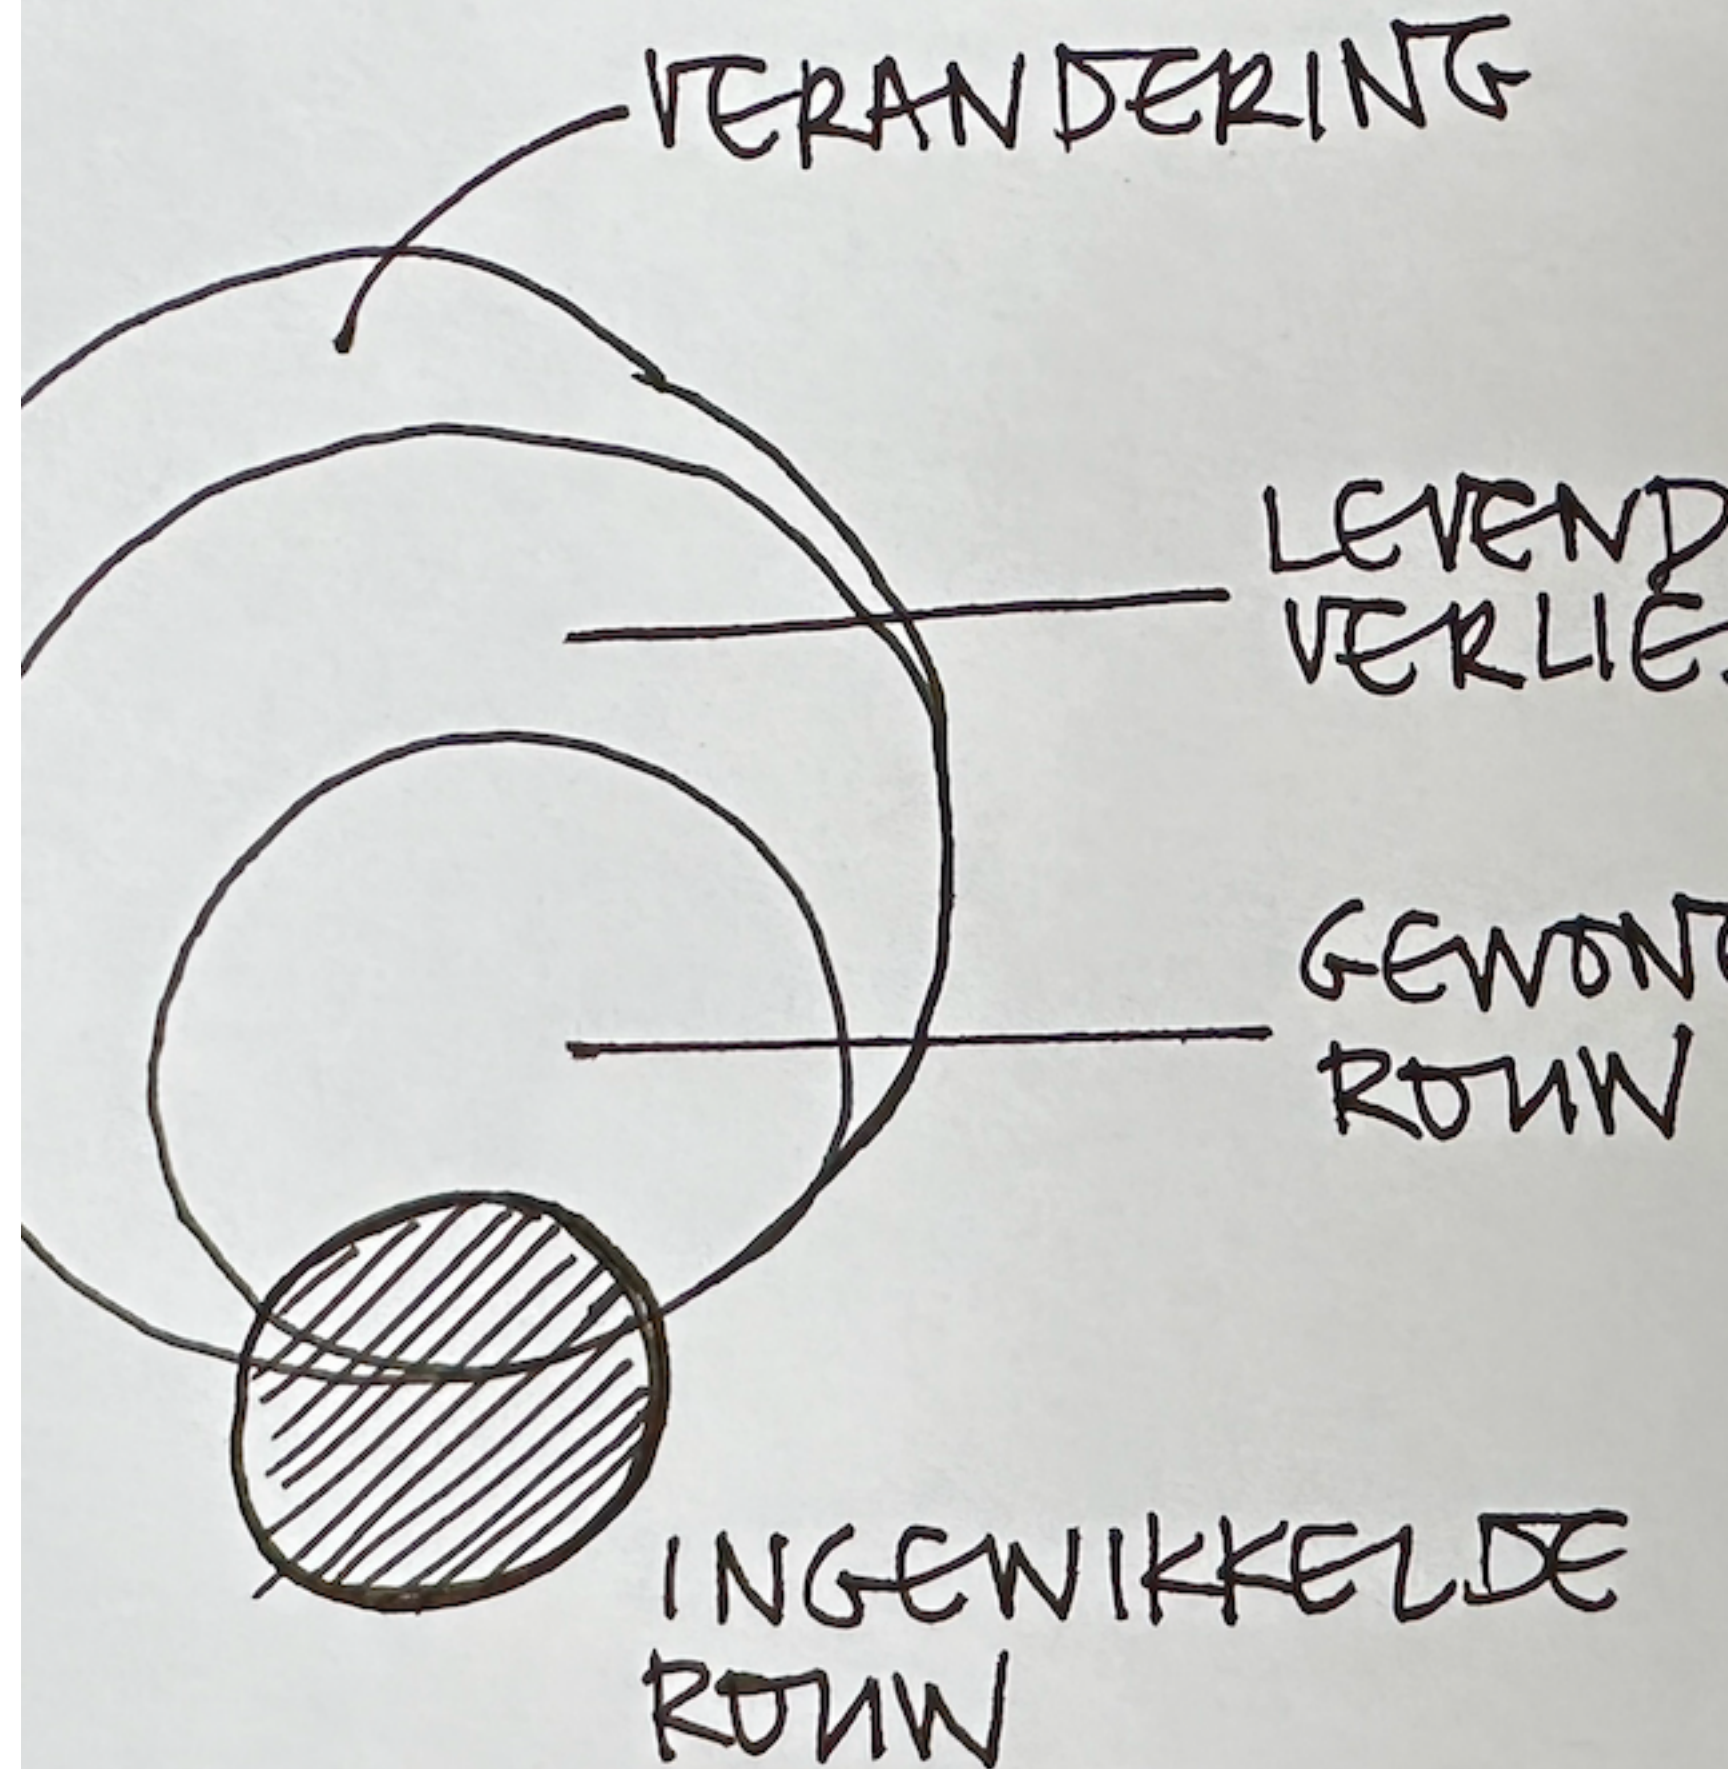 VERANDERING
LEVEND
VERLIES
GEWONE
ROUW
INGEWIKKELDE
ROUW